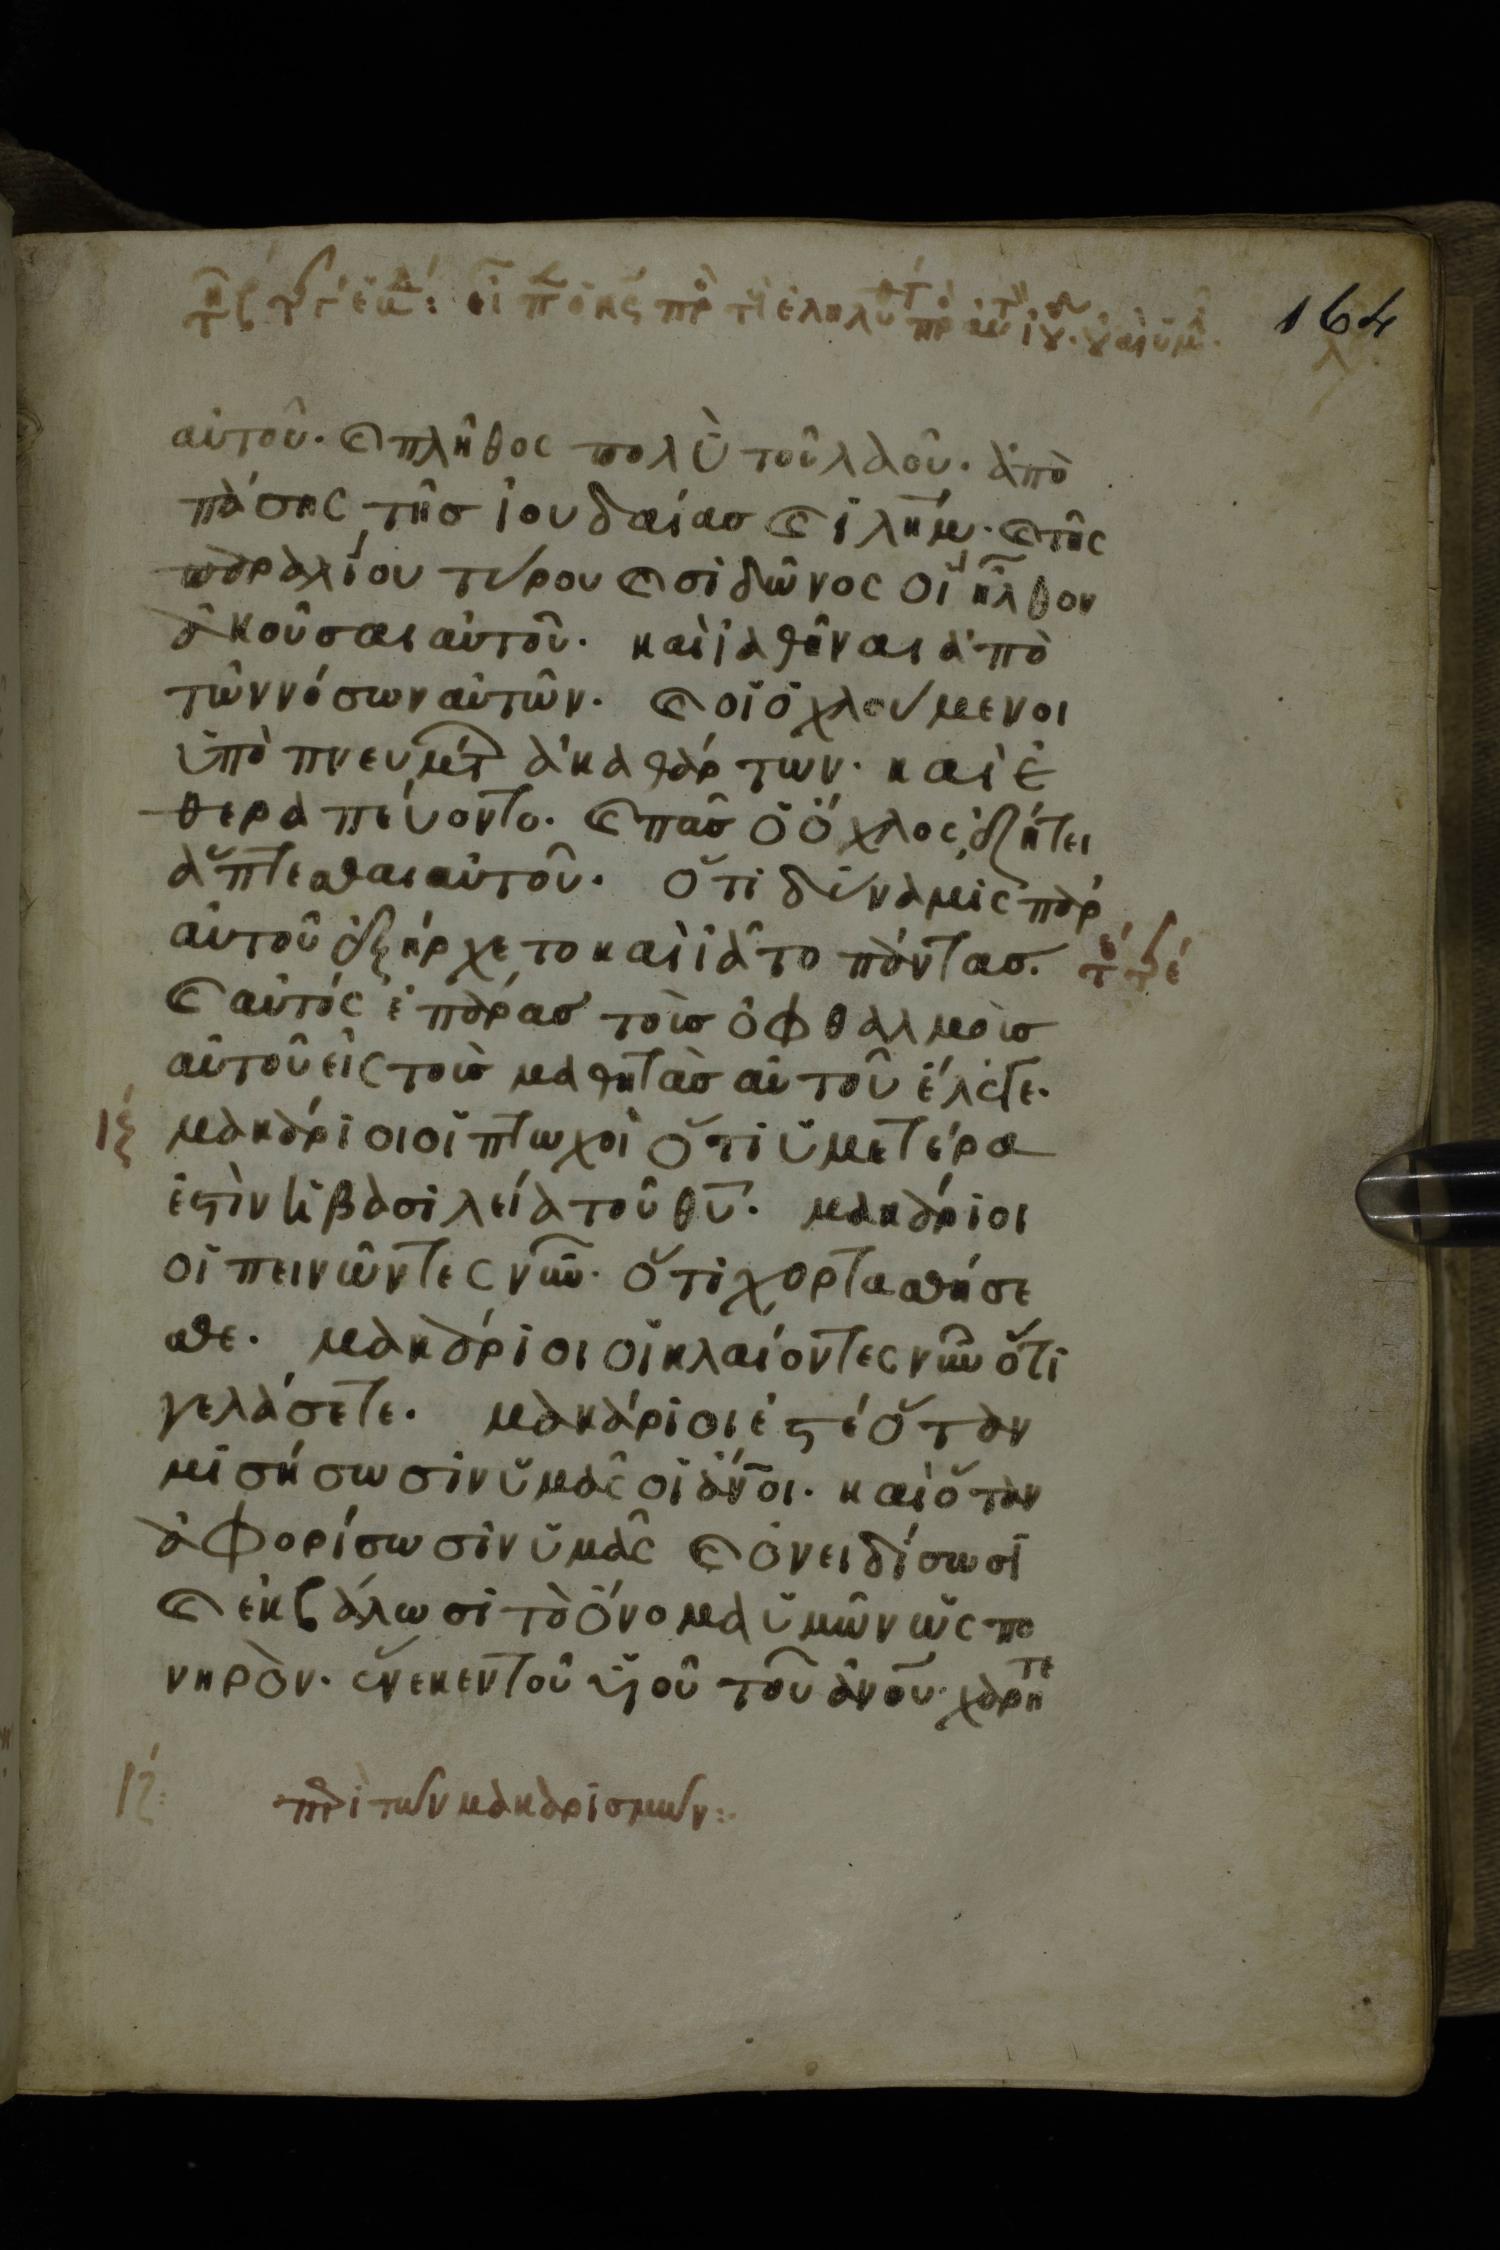 164
αὐτοῦ· καὶ πλῆθος πολὺ τοῦ λαοῦ· ἀπὸ
πάσης τῆσ ἰουδαίασ καὶ ἰλήμ· καὶ τῆς
παραλίου τύρου καὶ σιδῶνος οἳ ἦλθον
ἀκοῦσαι αὐτοῦ· καὶ ἰαθῆναι ἀπὸ
τῶν νόσων αὐτῶν· καὶ οἱ ὀχλούμενοι
ὑπὸ πνευμάτ ἀκαθάρτων· καὶ ἐ
θεραπεύοντο· καὶ πᾶσ ὁ ὄχλος ἐζήτει
ἅπτεσθαι αὐτοῦ· ὅτι δύναμις παρ
αὐτοῦ ἐξήρχετο καὶ ἰᾶτο πάντασ·
καὶ αὐτός ἐπάρασ τοὺσ ὀφθαλμοὺσ
αὐτοῦ εἰς τοὺσ μαθητὰσ αὐτοῦ ἔλεγε·
ιζ μακάριοι οἱ πτωχοὶ ὅτι ὑμετέρα
ἐστὶν ἡ βασιλεία τοῦ θυ· μακάριοι
οἱ πεινῶντες νῦν· ὅτι χορτασθήσε
σθε· μακάριοι οἱ κλαίοντες νῦν ὅτι
γελάσετε· μακάριοι ἐστέ ὅταν
μισήσωσιν ὑμᾶς οἱ ἄνοι· καὶ ὅταν
ἀφορίσωσιν ὑμᾶς καὶ ὀνειδίσωσι
καὶ ἐκβάλωσι τὸ ὄνομα ὑμῶν ὡς πο
νηρὸν· ἕνεκεν τοῦ υἱοῦ τοῦ ἀνου· χάρητε
ιζ: περὶ τῶν μακαρισμῶν: